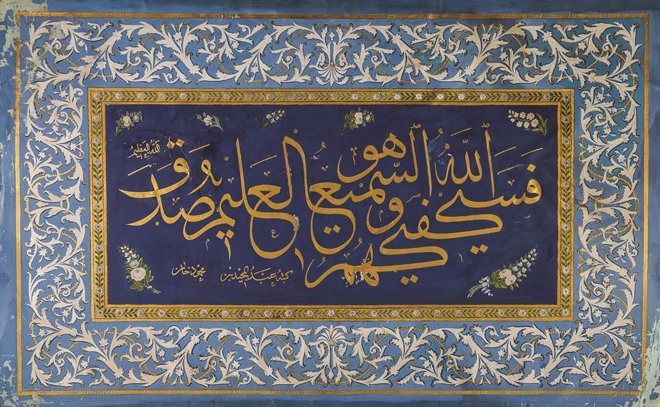 فسيكفيكهم الله وهو السميع العليم صدق
الله العظيم
كتبه عبد المجيد بن محمود خان